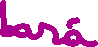 Lará